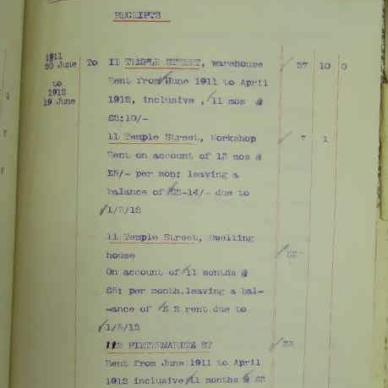 RECEIPTS
1911
20 June
to
1912
19 June
To 11 TEMPLE STREET, warehouse 37 10 0
Rent from June 1911 to April
1912, inclusive, 11 mos @
£3:10/-
11 Temple Street, Workshop 7 1
Rent on account of 12 mos @
per mon: leaving a
balance of due to
11 Temple Street, Dwelling
house
On account of 11 months @
£5: per month, leaving a bal-
-ance of rent due to
PIETERMARITZ ST
Rent from June 1911 to April
1912 inclusive 11 months @